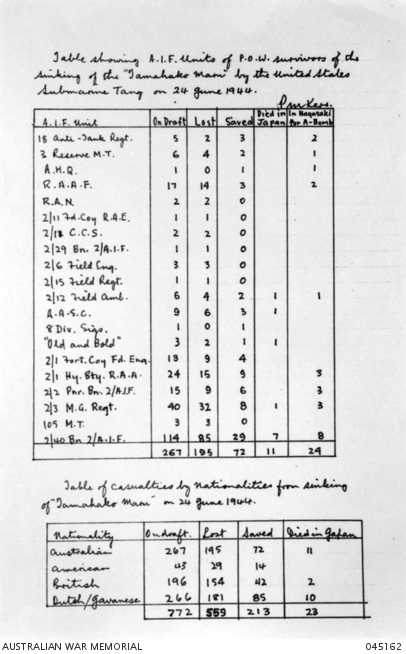 Table showing A.I.F. Units of P.O.W. survivors of the
sinking of the "Tamahako Maru" by the United States
Submarine Tang on 24 June 1944.
A.I.F. Unit On Draft Lost Saved Died in Japan In Nagasaki for A-Bomb
18 Anti-Tank Regt. 5 2 3 2
3 Reserve M.T. 6 4 2 1
A.H.Q. 1 0 1 1
R.A.A.F. 17 14 3 2
R.A.N. 2 2 0
2/11 Fd. Coy R.A.E. 1 1 0
2/12 C.C.S. 2 2 0
2/29 Bn. 2/A.I.F. 1 1 0
2/6 Field Eng. 3 3 0
2/15 Field Regt. 1 1 0
2/12 Field Amb. 6 4 2 1 1
A.A.S.C. 9 6 3 1
8 Div. Sigs. 1 0 1
"Old and Bold" 3 2 1 1
2/1 Fort. Coy Fd. Eng. 13 9 4
2/1 Hy. Bty. R.A.A. 24 15 9 3
2/2 Pnr. Bn. 2/A.I.F. 15 9 6 3
2/3 M.G. Regt. 40 32 8 1 3
105 M.T. 3 3 0
2/40 Bn. 2/A.I.F. 114 85 29 7 8
267 195 72 11 24
Table of casualties by Nationalities from sinking
of "Tamahako Maru" on 24 June 1944.
Nationality On draft. Lost Saved Died in Japan
Australian 267 195 72 11
American 43 29 14
British 196 154 42 2
Dutch/Javanese 266 181 85 10
772 559 213 23
AUSTRALIAN WAR MEMORIAL 045162